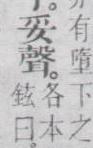 有墮下之
妥聲。各本
鉉曰。